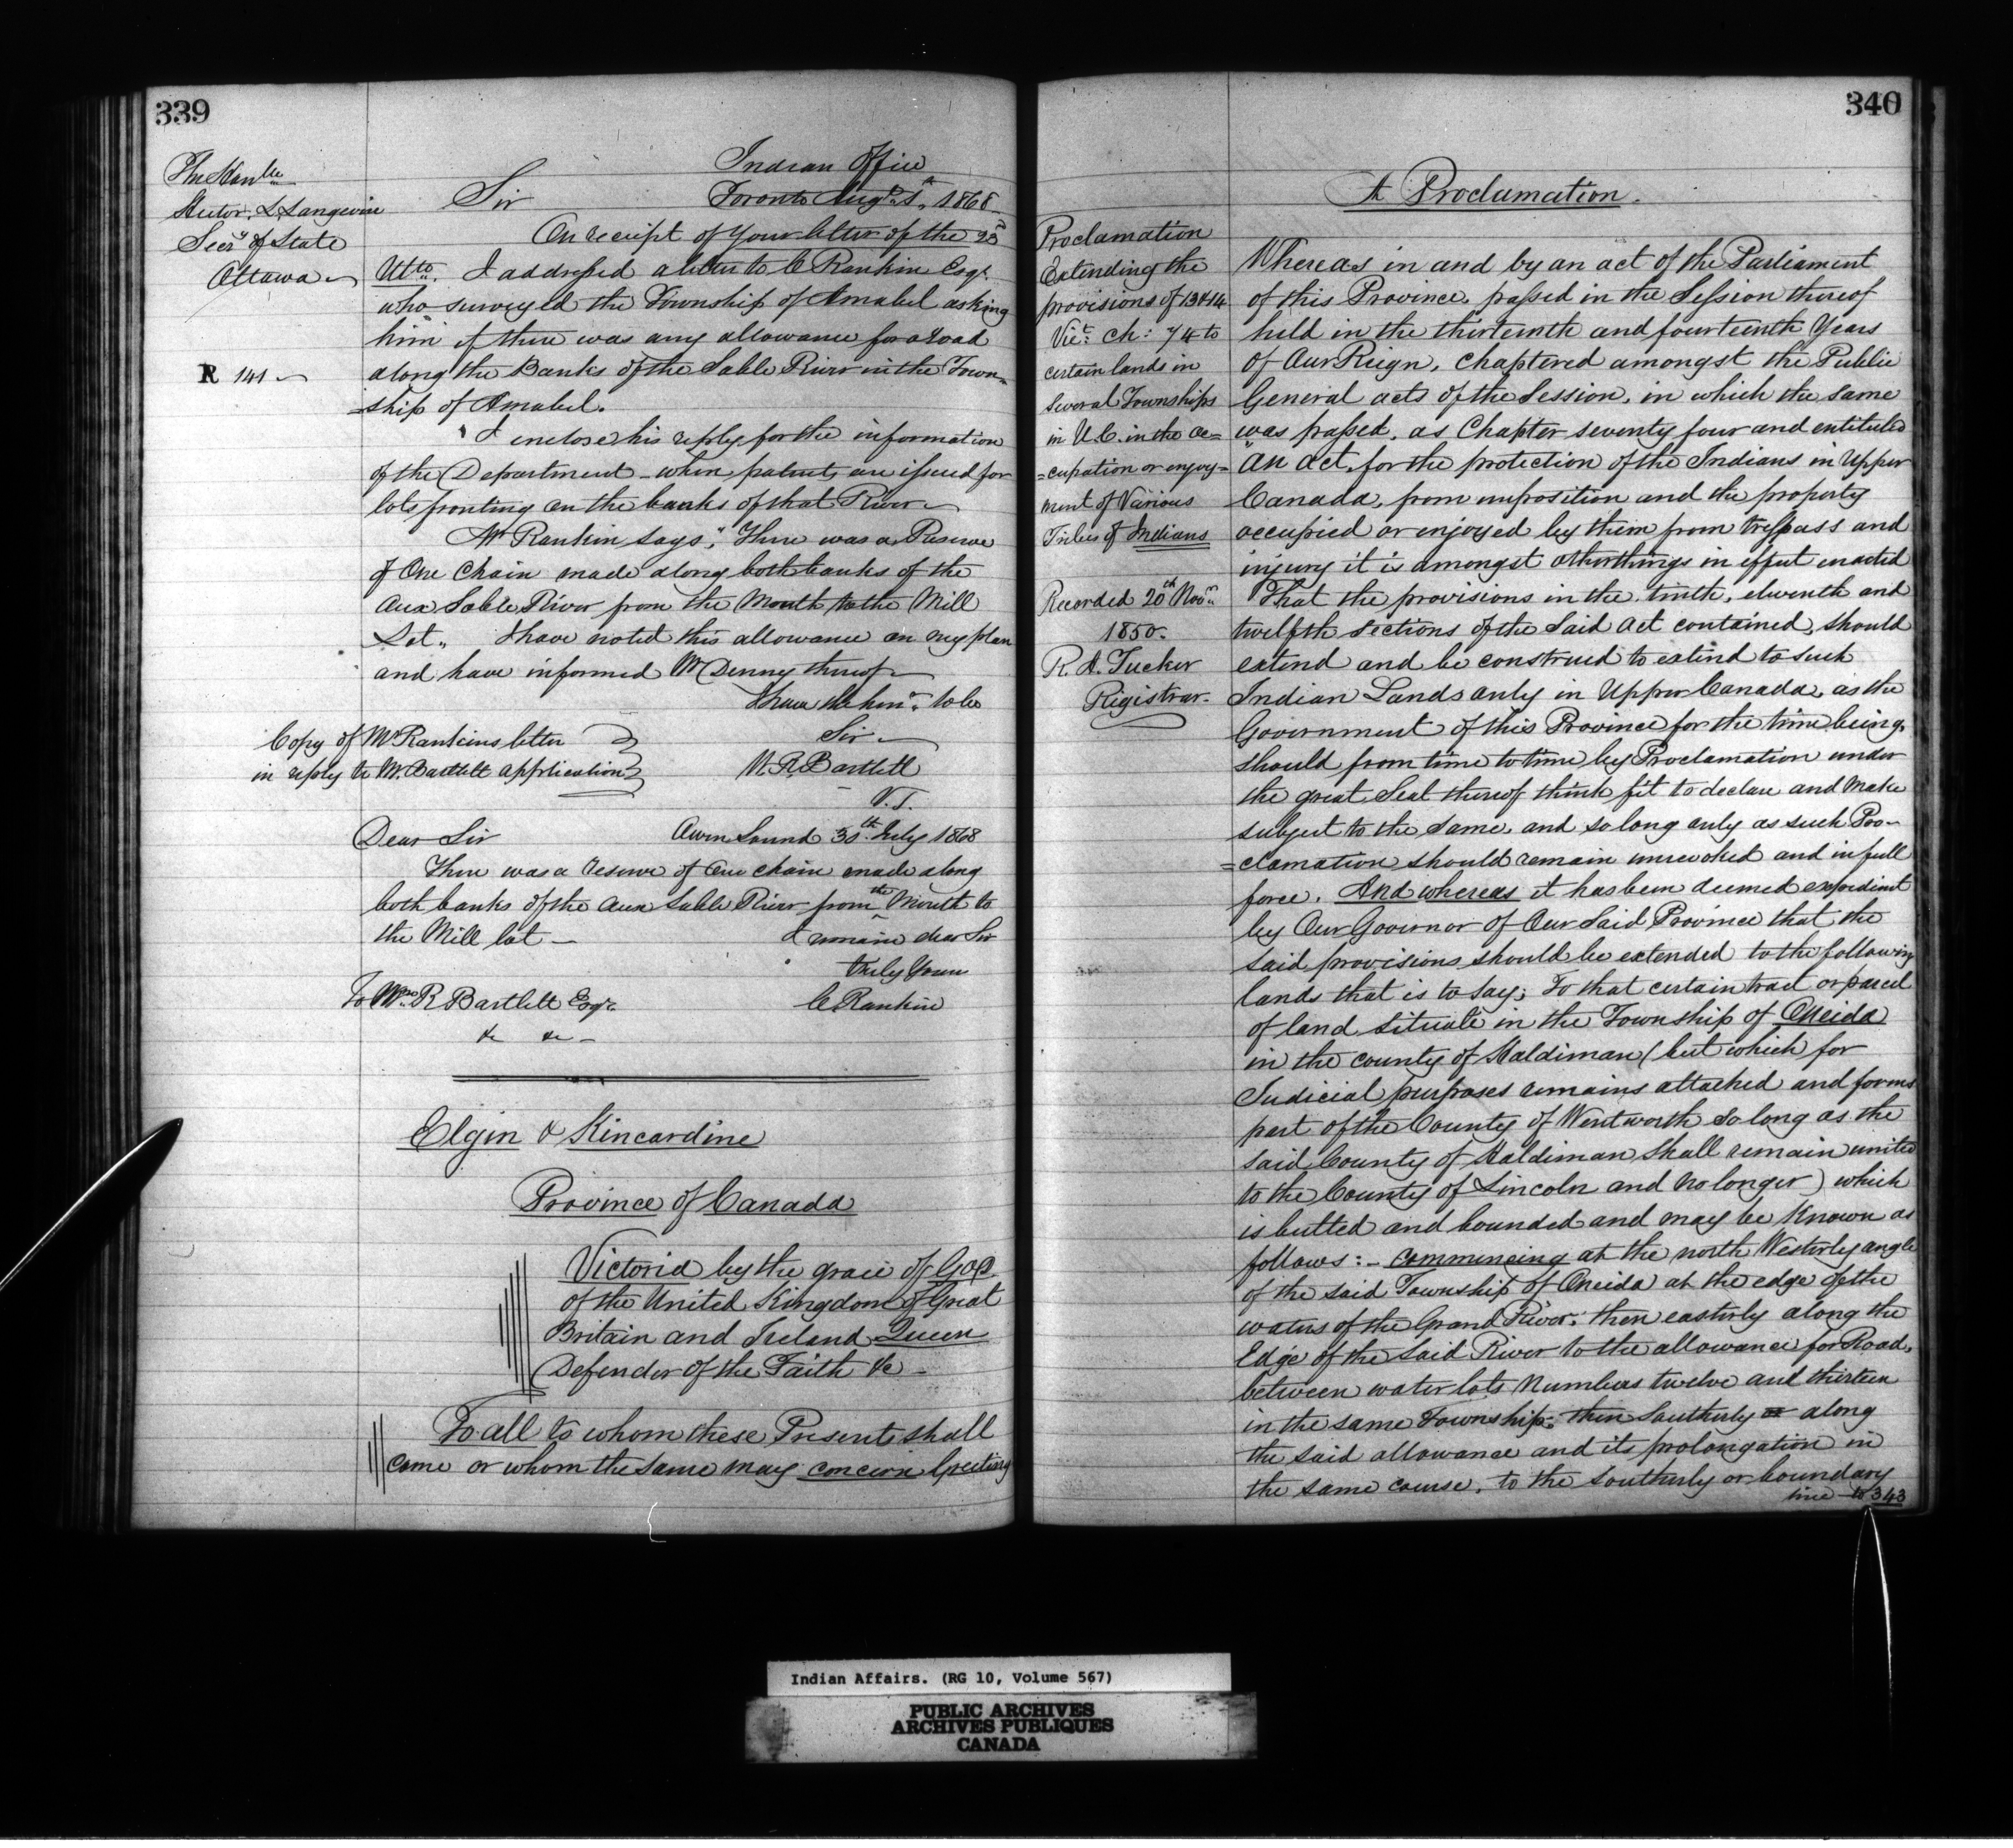 339
The Honble
Hector, L. Langevin
Secry of State
Ottawa
R 141
Indian Office
Sir Toronto Augt 1st 1868
On receipt of your letter of the 23d
Ulto. I addressed a letter to C Rankin Esqr.
who surveyed the Township of Amabel asking
him if there was any allowance for a road
along the Banks of the Sable River in the Town=
=ship of Amabel.
I enclose his reply for the information
of the Department - when patents are issued for
lots fronting on the banks of that River
Mr Rankin says, "There was a Reserve
of One Chain made along both banks of the
Aux Sable River from the Mouth to the Mill
Lot" I have noted this allowance on my plan
and have informed Mr Denny thereof
I have the honr. to be
Sir
W. R. Bartlett
V. S.
Copy of Mr Rankins letter
in reply to Mr. Bartlett application
Dear Sir Owen Sound 30th July 1868
There was a reserve of One chain made along
both banks of the Aux Sable River from the Mouth to
the Mill lot - I remain dear Sir
truly Yours
To Wm R Bartlett Esqr. C. Rankin
&c &c -
Elgin & Kincardine
Province of Canada
Victoria by the grace of God
of the United Kingdom of Great
Britain and Ireland Queen
Defender of the Faith &c -
To all to whom these Presents shall
come or whom the same may concern Greeting
340
A Proclamation.
Proclamation
Extending the
provisions of 13 & 14
Vict: ch: 74 to
certain lands in
Several Townships
in U.C. in the oc=
=cupation or enjoy=
ment of Various
Tribes of Indians
Recorded 20th Novr.
1850.
R. A. Tucker
Registrar.
Whereas in and by an act of the Parliament
of this Province, passed in the Session thereof
held in the thirteenth and fourteenth Years
of Our Reign, Chaptered amongst the Public
General acts of the Session, in which the same
was passed, as Chapter seventy four and entituled
"An Act, for the protection of the Indians in Upper
Canada, from imposition and the property
occupied or enjoyed by them from trespass and
injury it is amongst otherthings in effect enacted
That the provisions in the tenth, eleventh and
twelfth sections of the Said Act contained, should
extend and be construed to extend to such
Indian Lands only in Upper Canada, as the
Government of this Province for the time being,
should from time to time by Proclamation under
the great Seal thereof think fit to declare and make
subject to the same, and so long only as such Pro-
=clamation should remain unrevoked and in full
force. And whereas it has been deemed expedient
by Our Governor of Our Said Province that the
said provisions should be extended to the following
lands that is to say; To that certain tract or parcel
of land situate in the Township of Oneida
in the county of Haldiman (but which for
Judicial purposes remains attached and forms
part of the County of Wentworth so long as the
said County of Haldiman shall remain united
to the County of Lincoln and no longer) which
is butted and bounded and may be Known as
follows: - commencing at the north Westerly angle
of the said Township of Oneida at the edge of the
waters of the Grand River: then easterly along the
Edge of the said River to the allowance for Road,
between water lots Numbers twelve and thirteen
in the same Township: then Southerly along
the said allowance and its prolongation in
the same course, to the Southerly or boundary
line to 343
Indian Affairs. (RG 10, Volume 567)
PUBLIC ARCHIVES
ARCHIVES PUBLIQUES
CANADA